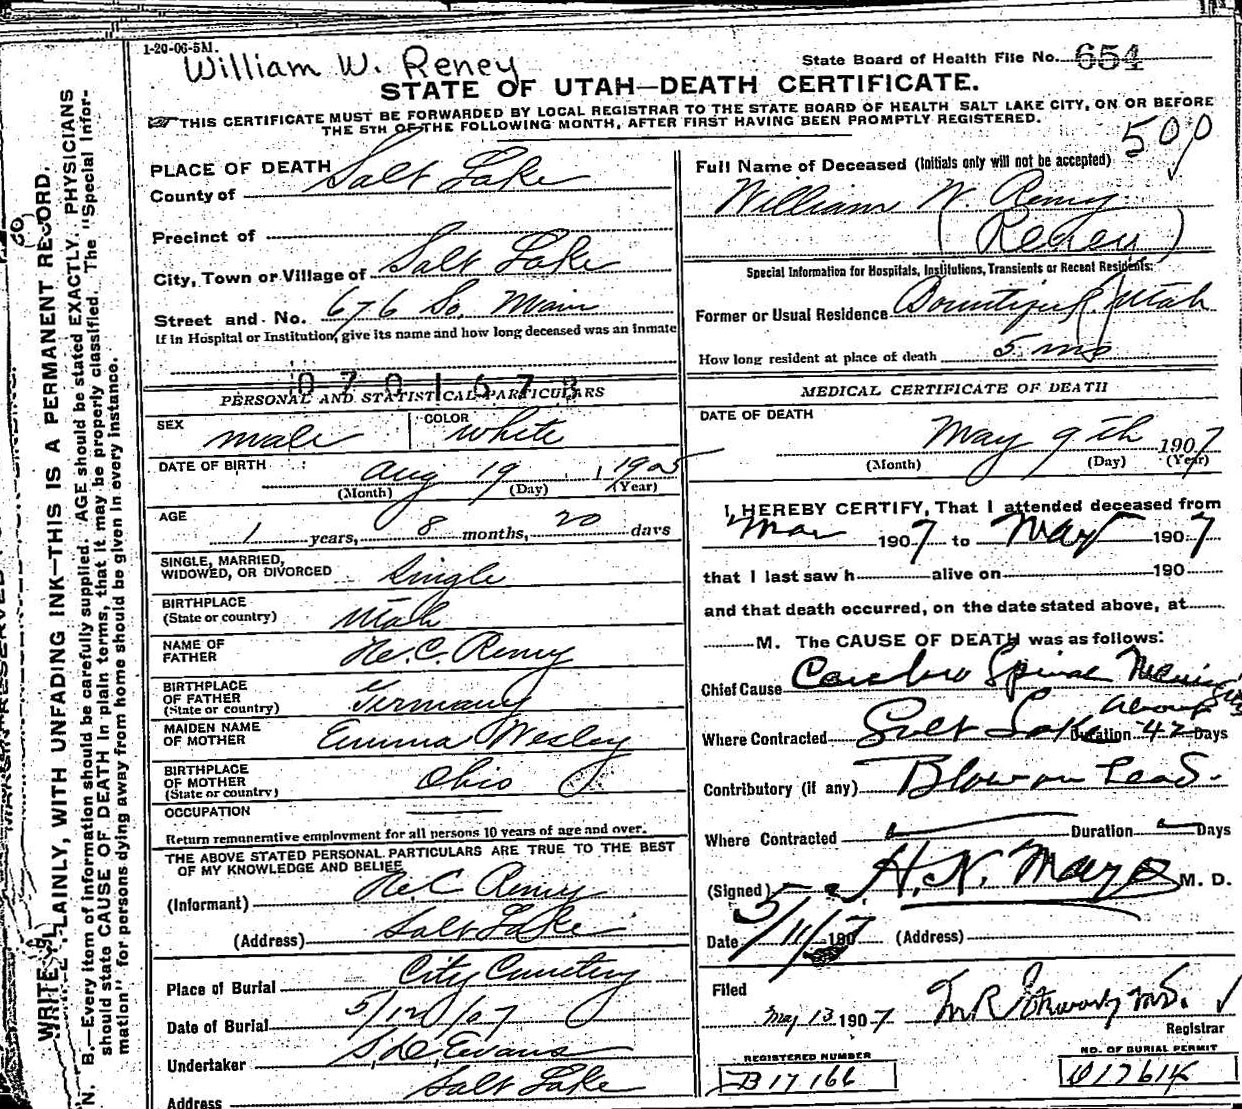 1-20-06-5M.
William W. Reney
State Board of Health File No. 654
STATE OF UTAH—DEATH CERTIFICATE.
THIS CERTIFICATE MUST BE FORWARDED BY LOCAL REGISTRAR TO THE STATE BOARD OF HEALTH SALT LAKE CITY, ON OR BEFORE
THE 5TH OF THE FOLLOWING MONTH, AFTER FIRST HAVING BEEN PROMPTLY REGISTERED.
500
PLACE OF DEATH
County of Salt Lake
Precinct of
City, Town or Village of Salt Lake
Street and No. 676 So. Main
If in Hospital or Institution, give its name and how long deceased was an inmate
0701673
PERSONAL AND STATISTICAL PARTICULARS
SEX male COLOR white
DATE OF BIRTH Aug 19 1905
(Month) (Day) (Year)
AGE 1 years, 8 months, 20 days
SINGLE, MARRIED,
WIDOWED, OR DIVORCED Single
BIRTHPLACE
(State or country) Utah
NAME OF
FATHER He. C. Remy
BIRTHPLACE
OF FATHER
(State or country) Germany
MAIDEN NAME
OF MOTHER Emma Wesley
BIRTHPLACE
OF MOTHER
(State or country) Ohio
OCCUPATION
Return remunerative employment for all persons 10 years of age and over.
THE ABOVE STATED PERSONAL PARTICULARS ARE TRUE TO THE BEST
OF MY KNOWLEDGE AND BELIEF
(Informant) He. C. Remy
(Address) Salt Lake
Place of Burial City Cemetery
Date of Burial 5/12/07
Undertaker S. D. Evans
Address Salt Lake
Full Name of Deceased (Initials only will not be accepted)
William W. Remy
(Reney)
Special Information for Hospitals, Institutions, Transients or Recent Residents:
Former or Usual Residence Bountiful Utah
How long resident at place of death 5 mos
MEDICAL CERTIFICATE OF DEATH
DATE OF DEATH
May 9th 1907
(Month) (Day) (Year)
I HEREBY CERTIFY, That I attended deceased from
Mar 1907 to May 1907
that I last saw h alive on 190
and that death occurred, on the date stated above, at
M. The CAUSE OF DEATH was as follows:
Chief Cause Cerebro Spinal Meningitis
About
Where Contracted Salt Lake Duration 42 Days
Contributory (if any) Blow on head.
Where Contracted Duration Days
(Signed) H. N. Mayo M. D.
Date 5/11/07 190 (Address)
Filed
May 13 1907 M.D.
Registrar
REGISTERED NUMBER
B17166
NO. OF BURIAL PERMIT
017614
WRITE PLAINLY, WITH UNFADING INK—THIS IS A PERMANENT RECORD.
N. B.—Every item of information should be carefully supplied. AGE should be stated EXACTLY. PHYSICIANS
should state CAUSE OF DEATH in plain terms, that it may be properly classified. The "Special Infor-
mation" for persons dying away from home should be given in every instance.